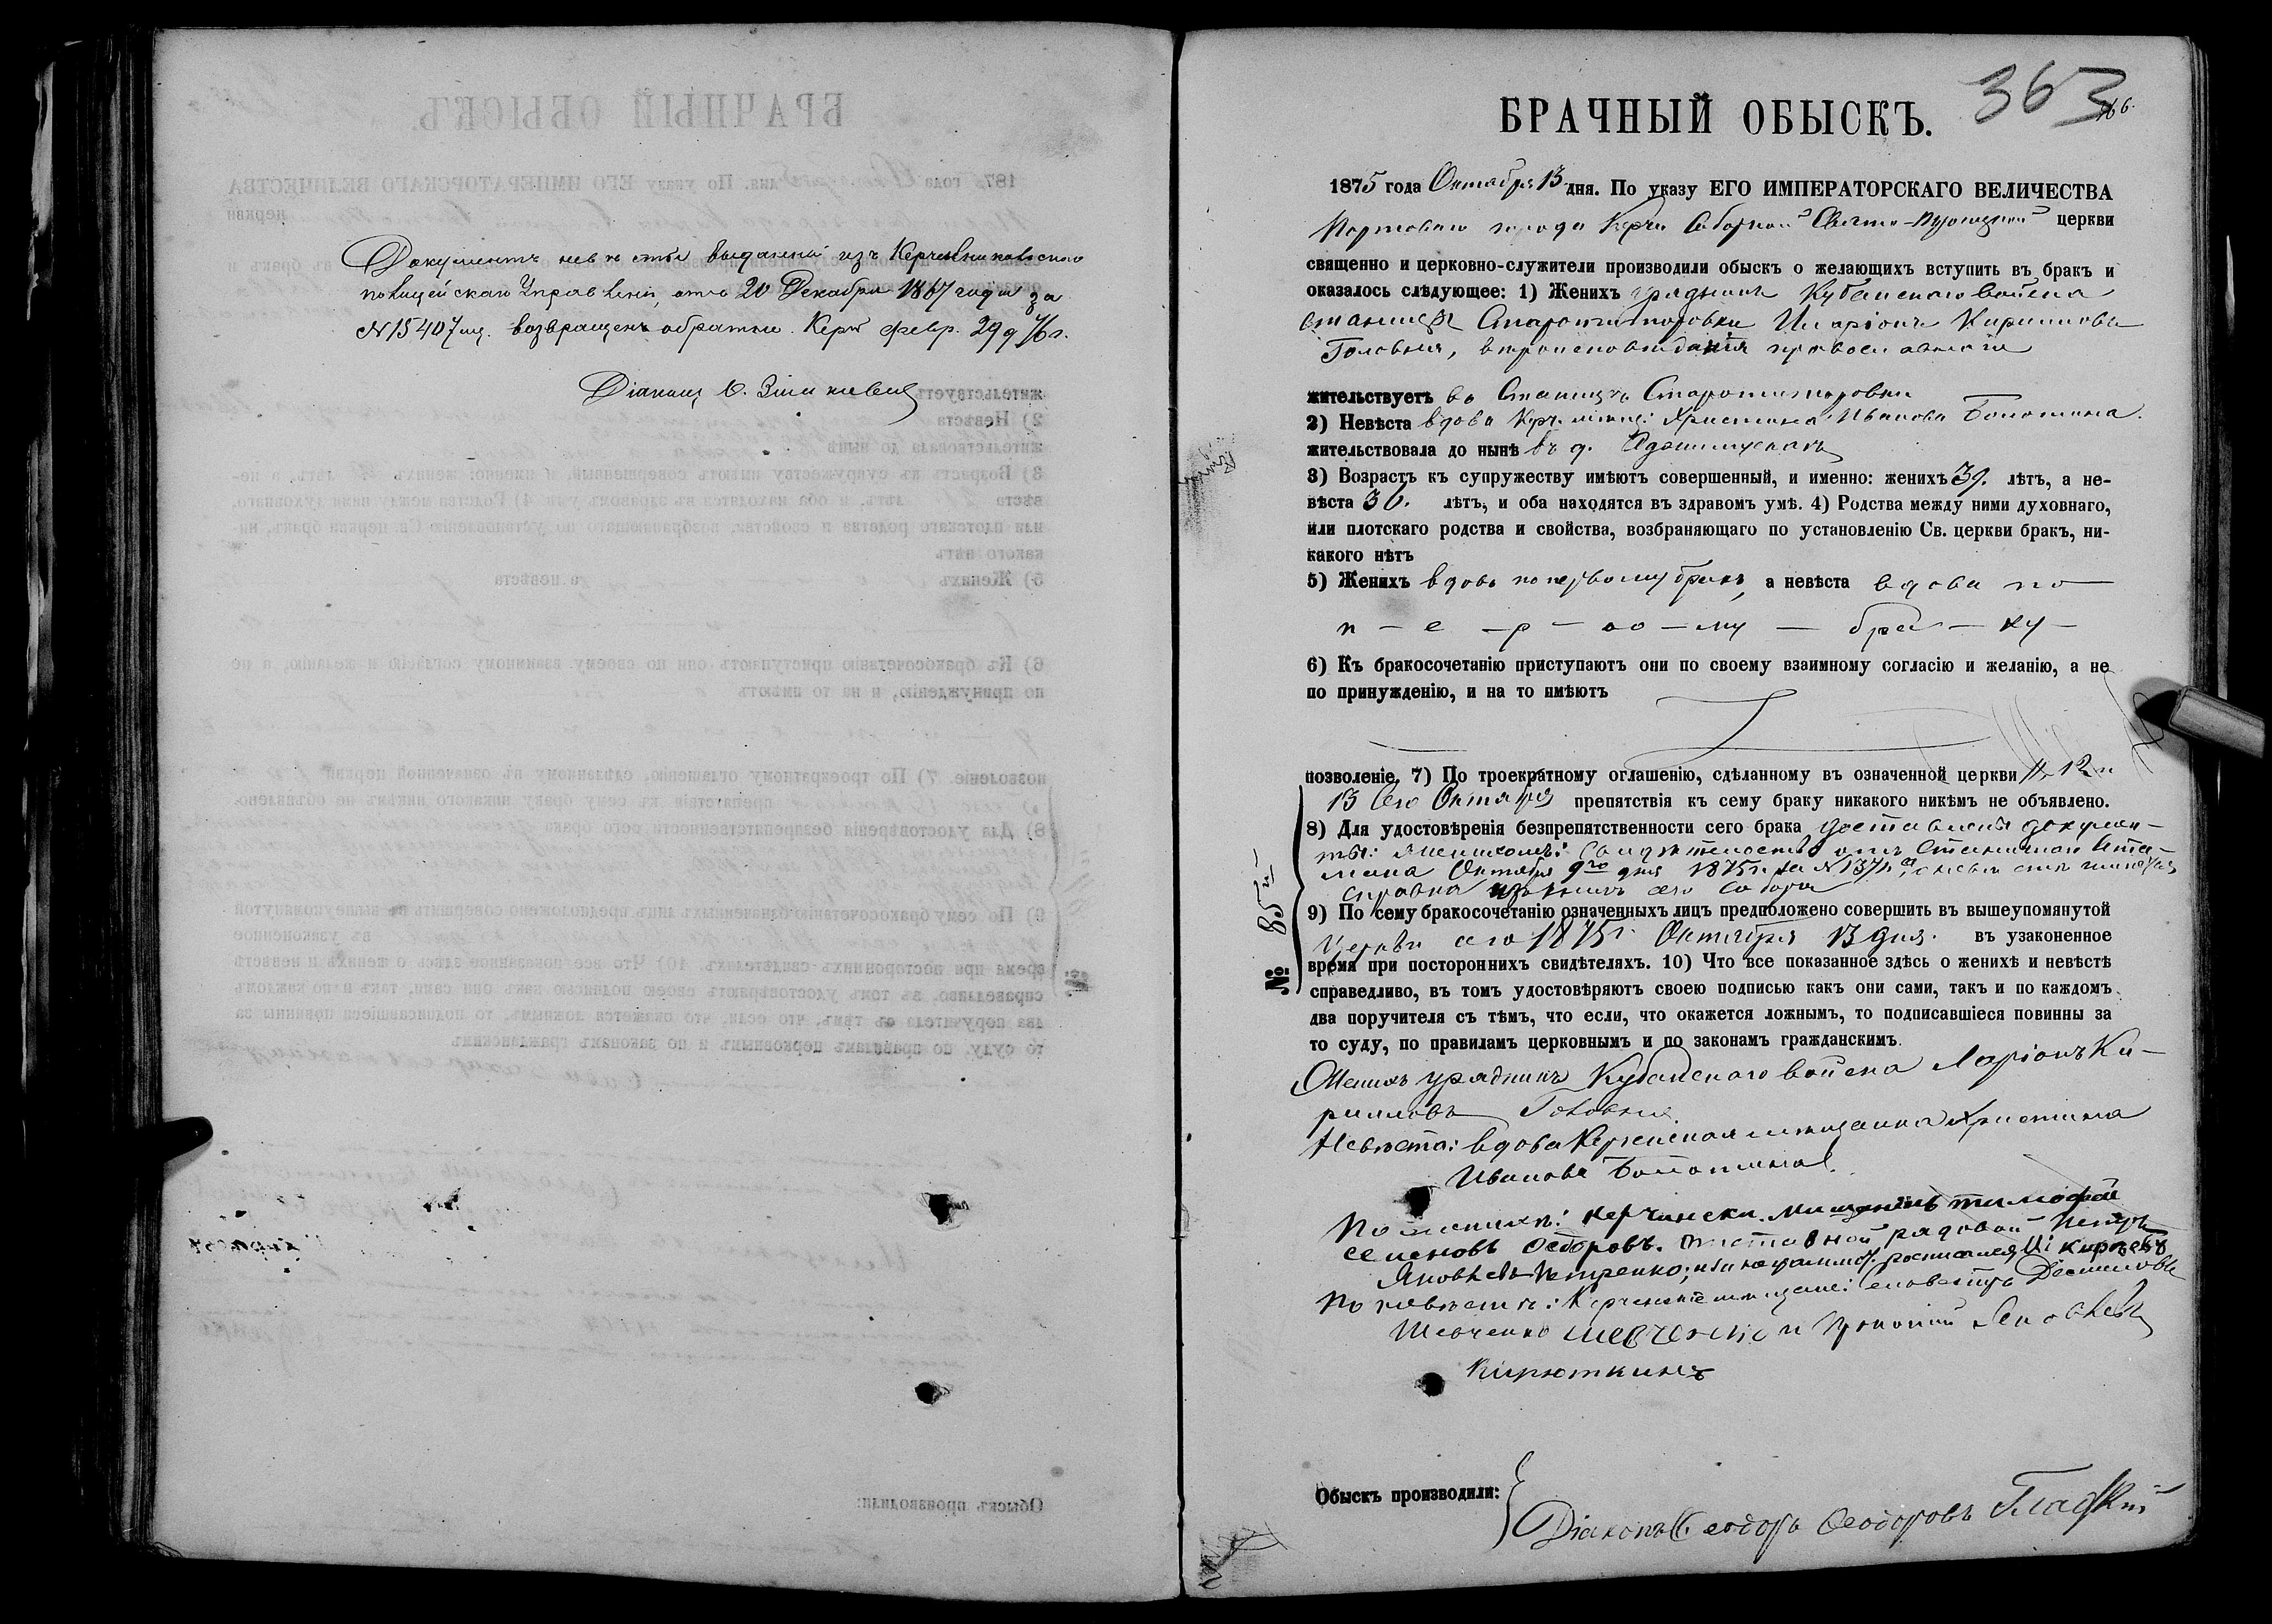 Документъ невѣсты выданный изъ Керчьеникольского
полицейскаго Управленія, отъ 20 Декабря 1867 года за
№ 15407мъ. возвращенъ обратно. Керчь февр. 29 д. 76 г.
Діаконъ
363
БРАЧНЫЙ ОБЫСКЪ.
1875 года Октября 13 дня. По указу ЕГО ИМПЕРАТОРСКАГО ВЕЛИЧЕСТВА
Портоваго города Керчи Соборной Свято-Троицкой церкви
священно и церковно-служители производили обыскъ о желающихъ вступить въ бракъ и
оказалось слѣдующее: 1) Женихъ урядникъ Кубанскаго войска
станицы Старотитаровки Иларіонъ Кирилловъ
Головня, вѣроисповѣданія православнаго
жительствуетъ въ Станицѣ Старотитаровки
2) Невѣста вдова Керч. мѣщ: Христина Иванова Болотина.
жительствовала до нынѣ въ д.
3) Возрастъ къ супружеству имѣютъ совершенный, и именно: женихъ 39. лѣтъ, а не-
вѣста 30. лѣтъ, и оба находятся въ здравомъ умѣ. 4) Родства между ними духовнаго,
или плотскаго родства и свойства, возбраняющаго по установленію Св. церкви бракъ, ни-
какого нѣтъ
5) Женихъ вдовъ по первому бракѣ, а невѣста вдова по
п — е — р — во — му — бра — ку —
6) Къ бракосочетанію приступаютъ они по своему взаимному согласію и желанію, а не
по принужденію, и на то имѣютъ
позволеніе. 7) По троекратному оглашенію, сдѣланному въ означенной церкви 11, 12 и
13 сего Октября препятствія къ сему браку никакого никѣмъ не объявлено.
8) Для удостовѣренія безпрепятственности сего брака доставлены докумен-
ты: женихомъ: Свидѣтельство отъ Станичнаго Ата-
мана Октября 9го дня 1875 г. за №
справка изъ книгъ сего Собора
№ 85й
9) По сему бракосочетанію означенныхъ лицъ предположено совершить въ вышеупомянутой
Церкви сего 1875 г. Октября 13 дня. въ узаконенное
время при постороннихъ свидѣтеляхъ. 10) Что все показанное здѣсь о женихѣ и невѣстѣ
справедливо, въ томъ удостовѣряютъ своею подписью какъ они сами, такъ и по каждомъ
два поручителя съ тѣмъ, что если, что окажется ложнымъ, то подписавшіеся повинны за
то суду, по правиламъ церковнымъ и по законамъ гражданскимъ.
Женихъ урядникъ Кубанскаго войска Ларіонъ Ки-
рилловъ Головня
Невѣста: вдова Керченская мѣщанка Христина
Иванова Болотина.
По женихѣ: керчински. мищанинъ тимофей
семеновъ Федоровъ. отставной рядовой Петръ
Яковлевъ Петренко;
По невѣстѣ: Керченскіе мѣщане:
Шевченко шевченко и Прокопій Яковлевъ
Кирюткинъ
Обыскъ производили:
Діаконъ Ѳеодоръ Ѳеодоровъ Гладкій